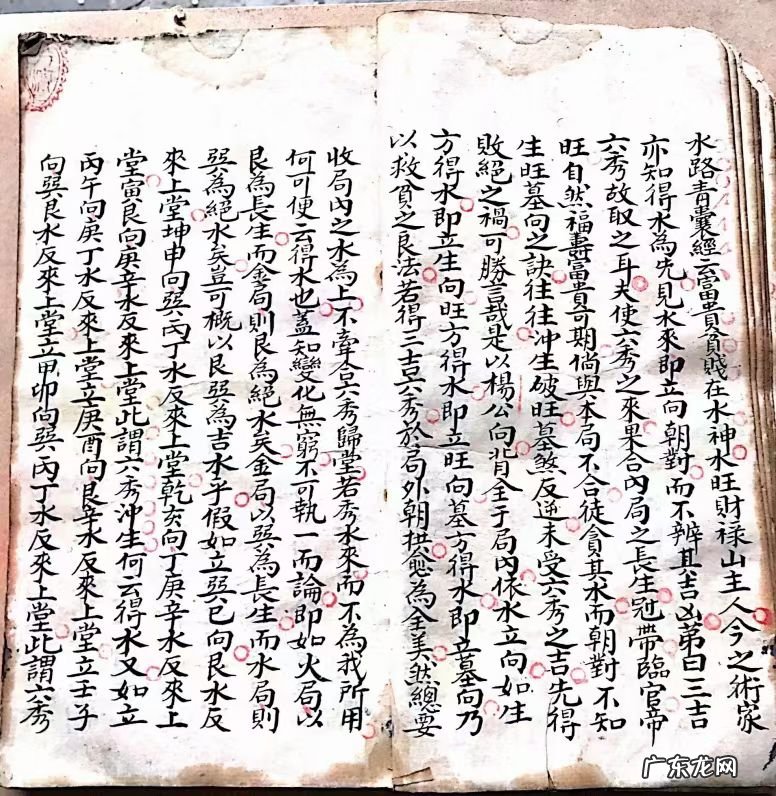 水路青囊經云富貴貧賤在水神水旺財祿山主人今之術家
亦知得水為先見水來即立向朝對而不辨其吉凶第曰三吉
六秀故取之耳夫使六秀之來果合內局之長生冠帶臨官帝
旺自然福壽富貴可期倘與本局不合徒貪其水而朝對不知
生旺墓向之訣往往冲生破旺墓煞反逆未受六秀之吉先得
敗絕之禍可勝言哉是以楊公向背全于局內依水立向如生
方得水即立生向旺方得水即立旺向墓方得水即立墓向乃
以救貧之良法若得三吉六秀於局外朝拱愈為全美然總要
收局內之水為上不牽合六秀歸堂若秀水來而不為我所用
何可便云得水也蓋知變化無窮不可執一而論即如火局以
艮為長生而金局則艮為絕水矣金局以巽為長生而水局則
巽為絕水矣豈可概以艮巽為吉水乎假如立巽巳向艮水反
來上堂坤申向巽丙丁水反來上堂乾亥向丁庚辛水反來上
堂寅艮向庚辛水反來上堂此謂六秀冲生何云得水又如立
丙午向庚丁水反來上堂立庚酉向艮辛水反來上堂立壬子
向巽艮水反來上堂立甲卯向巽丙丁水反來上堂此謂六秀
广东龙网